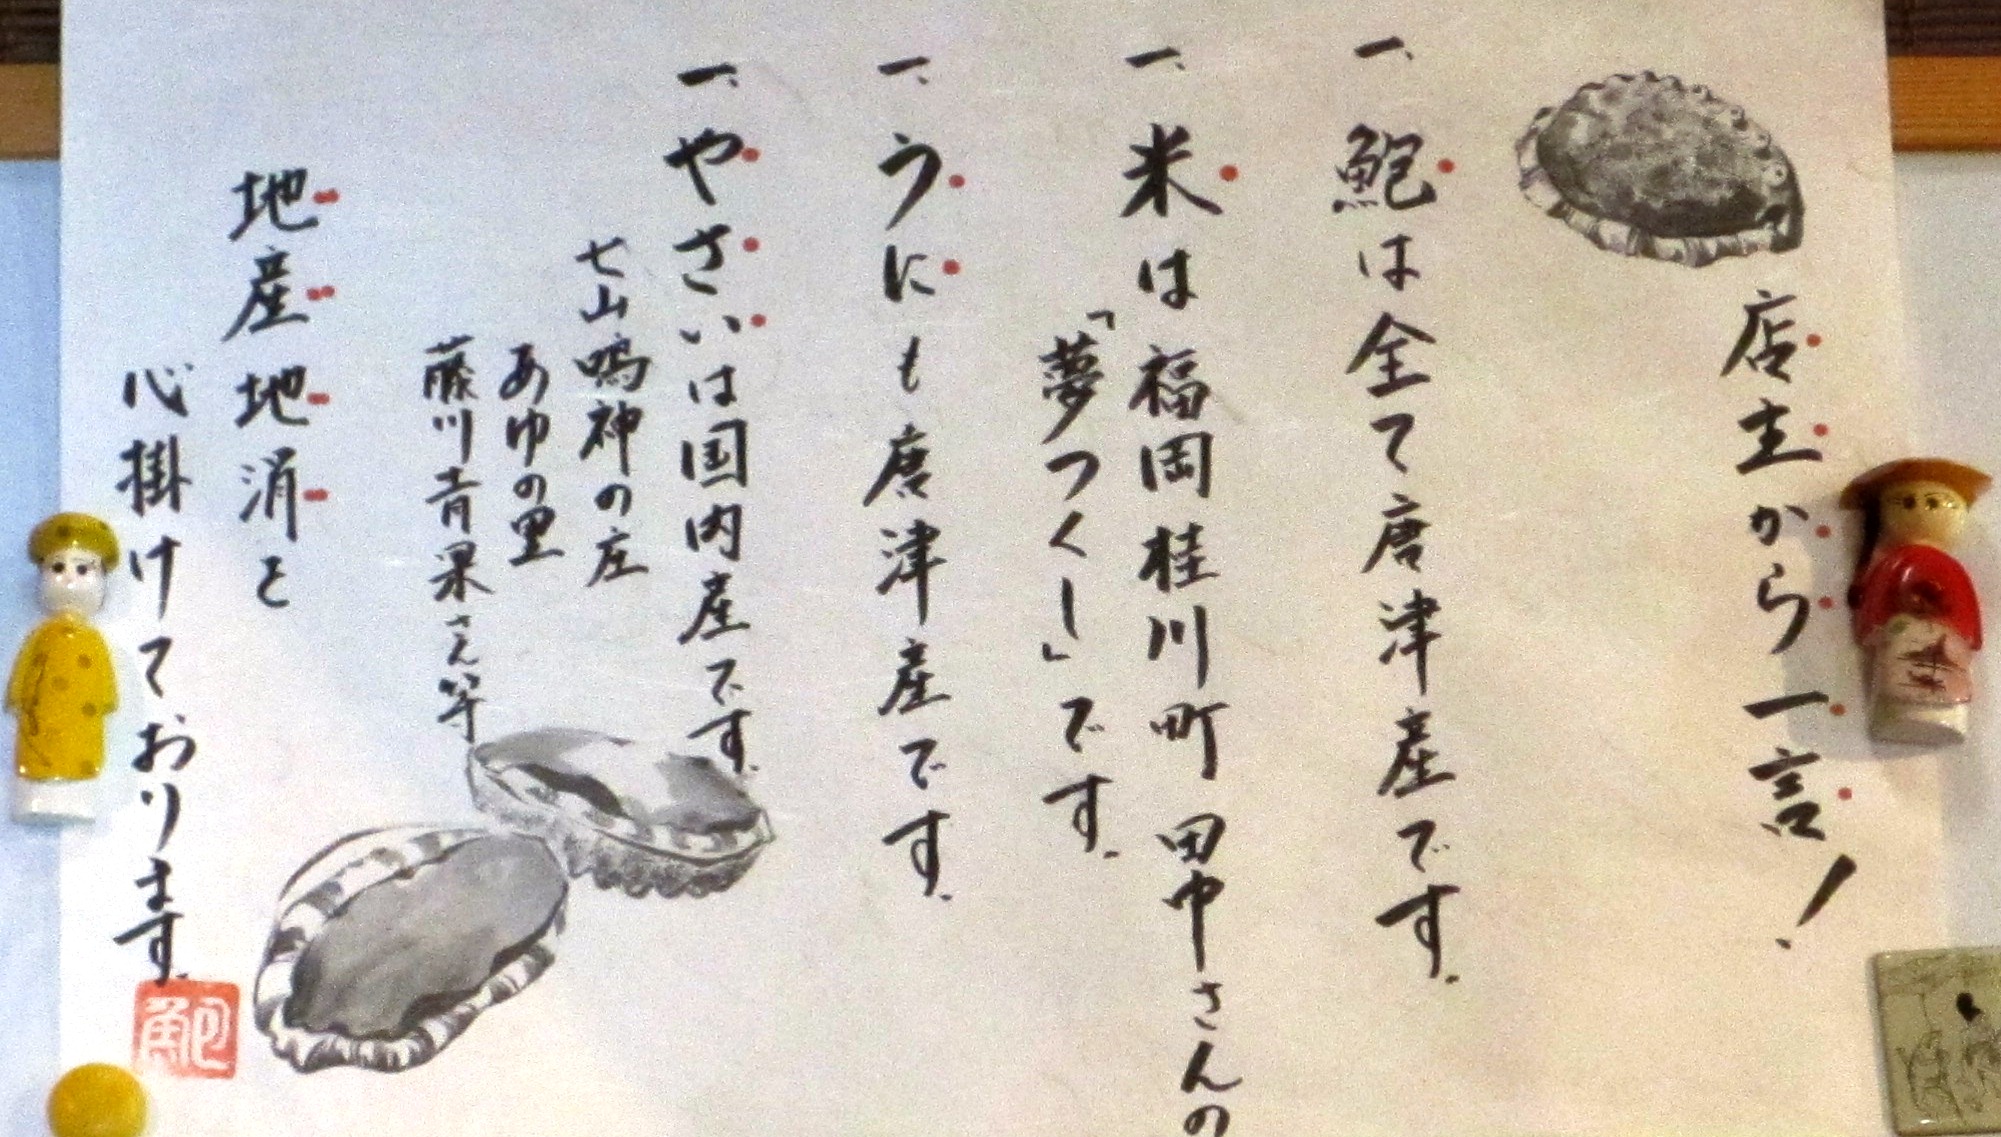 店主から一言!
一、鮑は全て唐津産です。
一、米は福岡桂川町 田中さんの
「夢つくし」です。
一、うにも唐津産です。
一、やさいは国内産です。
七山鳴神の庄
あゆの里
藤川青果さん等
地産地消を
心掛けております。
鮑